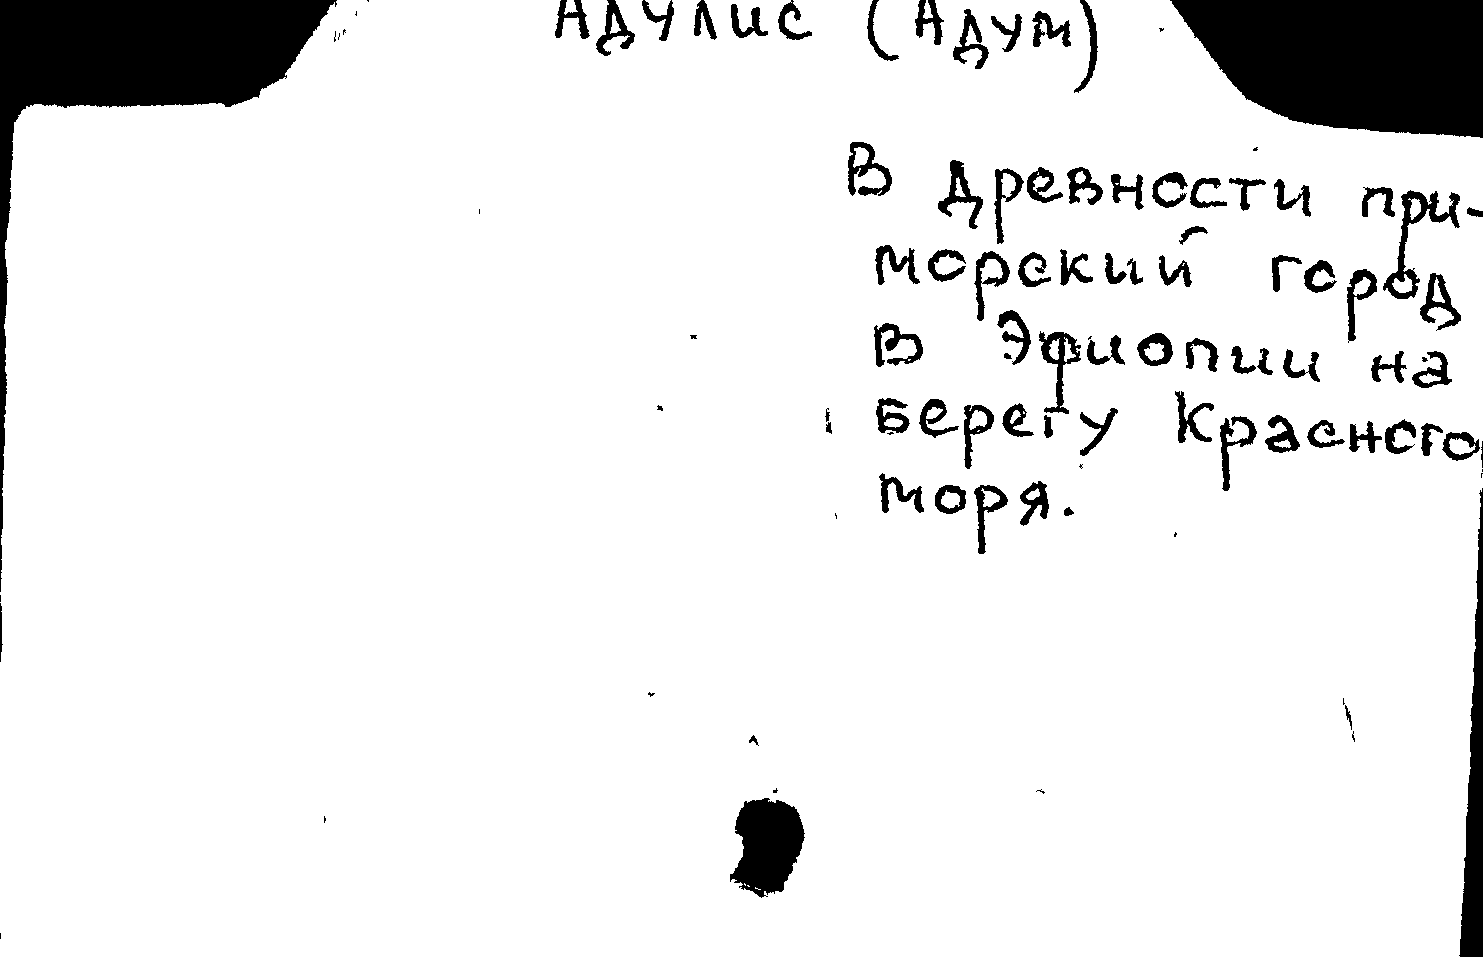 Адулис (Адум)
В древности при-
морский город
в Эфиопии на
берегу Красного
моря.